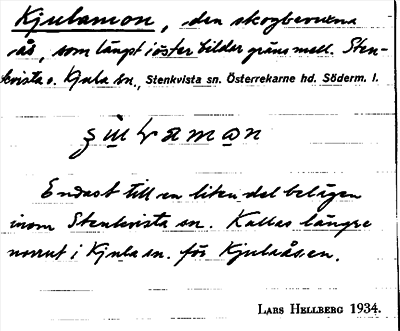 Kjulamon, den skogbevuxna
ås, som längst i öster bildar gräns mell. Sten-
kvista o. Kjula sn., Stenkvista sn. Österrekarne hd. Söderm. l.
Endast till en liten del belägen
inom Stenkvista sn. Kallas längre
norrut i Kjula sn. för Kjulaåsen.
LARS HELLBERG 1934.